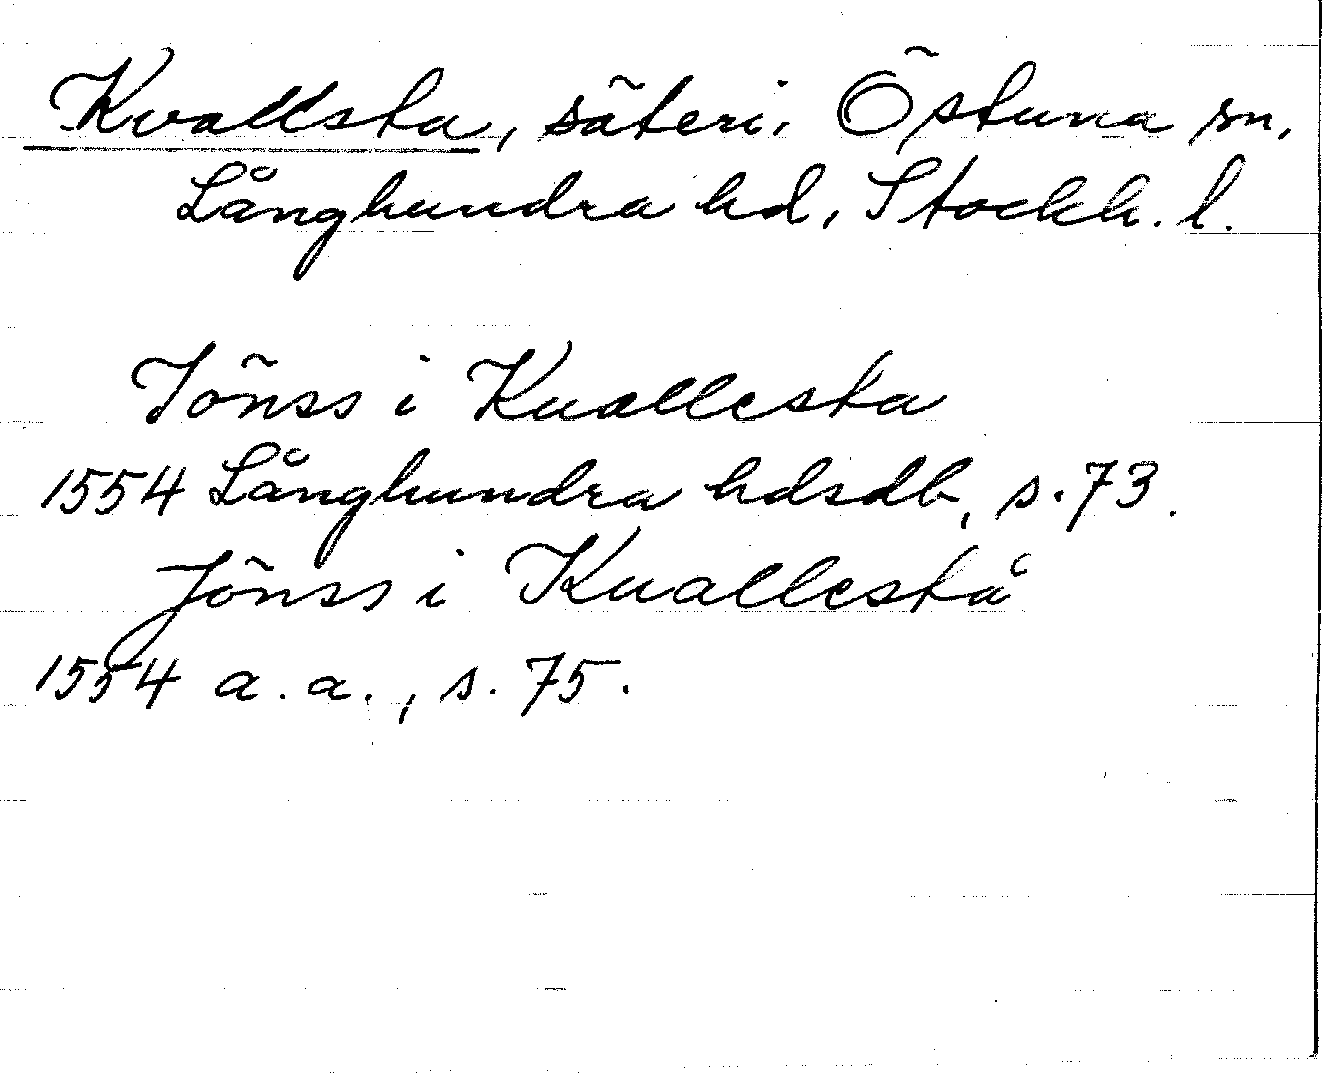 Kvallsta, säteri. Östuna sn,
Långhundra hd, Stockh. l.
Jönss i Kuallesta
1554 Långhundra hdsdb, s. 73.
Jönss i Kuallestå
1554 a. a., s. 75.